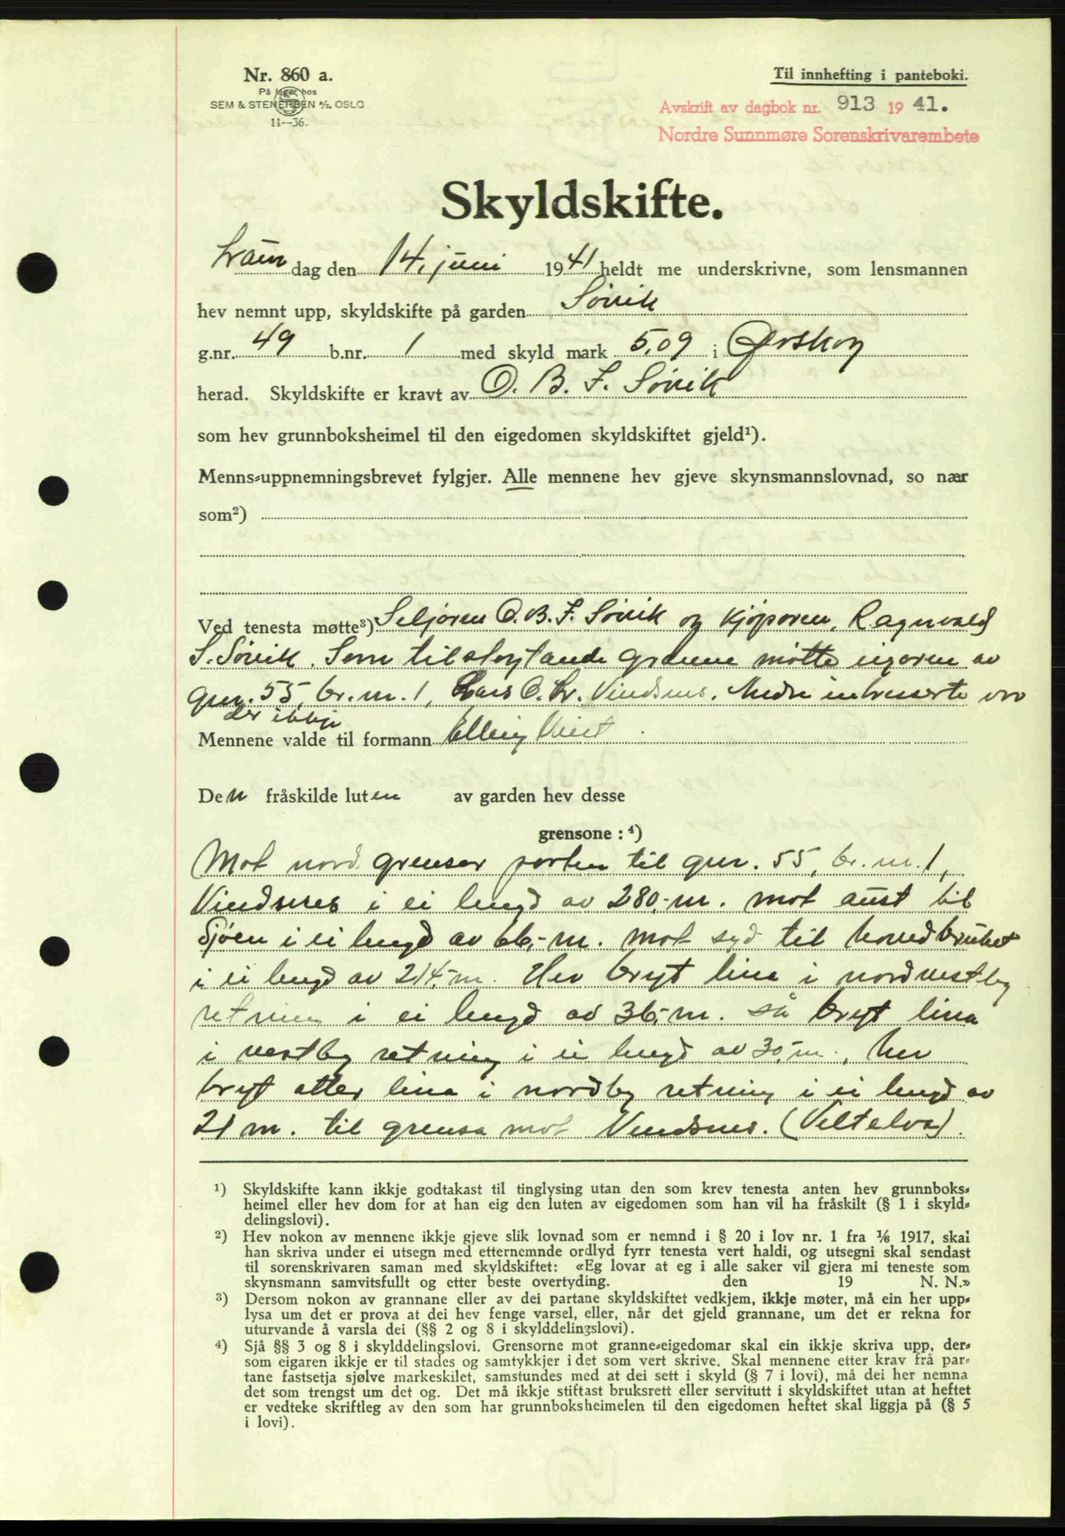 Nr. 860 a.
På lager hos
SEM & STENERSEN A/S. OSLO
11--36.
Til innhefting i panteboki.
Avskrift av dagbok nr. 913 19 41.
Nordre Sunnmøre Sorenskrivarembete
Skyldskifte.
Laur dag den 14. juni 1941 heldt me underskrivne, som lensmannen
hev nemnt upp, skyldskifte på garden Søvik
g.nr. 49 b.nr. 1 med skyld mark 5,09 i Ørskog
herad. Skyldskifte er kravt av O. B. F. Søvik
som hev grunnboksheimel til den eigedomen skyldskiftet gjeld¹).
Menns-uppnemningsbrevet fylgjer. Alle mennene hev gjeve skynsmannslovnad, so nær
som²)
Ved tenesta møtte³) Seljaren O. B. F. Søvik og kjøparen, Ragnvald
S. Søvik. Som tilstøytande granne møtte eigaren av
gnr. 55, br.nr. 1, Lars O. Vindsnes. Andre interesserte var
der ikkje
Mennene valde til formann Elling
Den fråskilde luten av garden hev desse
grensone : ⁴)
Mot nord grensar parten til gnr. 55, br. nr. 1,
Vindsnes i ei lengd av 280,- m. mot aust til
Sjøen i ei lengd av 66,- m. mot syd til hovedbruket
i ei lengd av 214,- m. Her bryt lina i nordvestleg
retning i ei lengd av 36,- m. så bryt lina
i vestleg retning i ei lengd av 30,- m., her
bryt atter lina i nordleg retning i ei lengd av
21 m. til grensa mot Vindsnes. (Veltelva).
¹) Skyldskifte kann ikkje godtakast til tinglysing utan den som krev tenesta anten hev grunnboks-
heimel eller hev dom for at han eig den luten av eigedomen som han vil ha fråskilt (§ 1 i skyld-
delingslovi).
²) Hev nokon av mennene ikkje gjeve slik lovnad som er nemnd i § 20 i lov nr. 1 fra 1/6 1917, skal
han skriva under ei utsegn med etternemnde ordlyd fyrr tenesta vert haldi, og utsegni skal sendast
til sorenskrivaren saman med skyldskiftet: «Eg lovar at eg i alle saker vil gjera mi teneste som
skynsmann samvitsfullt og etter beste overtyding. den 19 N. N.»
³) Dersom nokon av grannane eller av dei partane skyldskiftet vedkjem, ikkje møter, må ein her upp-
lysa um det er prova at dei hev fenge varsel, eller, når det gjeld grannane, um det er rekna for
uturvande å varsla dei (§§ 2 og 8 i skylddelingslovi).
⁴) Sjå §§ 3 og 8 i skylddelingslovi. Grensorne mot granne-eigedomar skal ein ikkje skriva upp, der-
som eigaren ikkje er til stades og samtykkjer i det som vert skrive. Skal mennene etter krav frå par-
tane fastsetja sjølve markeskilet, samstundes med at dei sett i skyld (§ 7 i lovi), må dei her nemna
det som trengst um det og. Det må ikkje stiftast bruksrett eller servitutt i skyldskiftet utan at heftet
er vedteke skriftleg av den som har grunnboksheimelen til den eigedomen heftet skal liggja på (§ 5
i lovi).